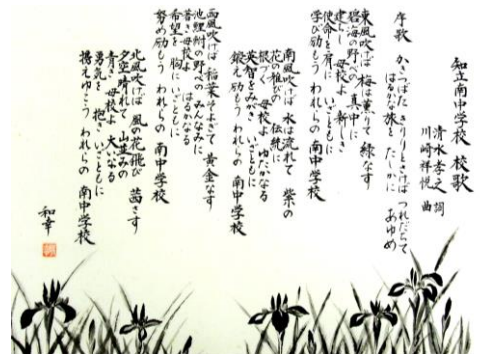 知立南中学校 校歌
清水孝之 詞
川崎祥悦 曲
序歌 かきつばた きりりとさけば つれだちて
はるかな旅を たしかに あゆめ
東風吹けば 梅は薫りて 緑なす
碧海の野べの 真中に
建ちし 母校よ 新しき
使命を肩に いざともに
学び励もう われらの 南中学校
南風吹けば 水は流れて 紫の
花の雅びの 伝統に
根づく 母校よ ゆたかなる
英智をみがき いざともに
鍛え励もう われらの 南中学校
西風吹けば 稲葉そよぎて 黄金なす
池鯉鮒の野べの みんなみに
若き母校よ はるかなる
希望を 胸に いざともに
努め励もう われらの 南中学校
北風吹けば 風の花飛び 茜さす
夕空晴れて 山並みの
青き 母校よ 大いなる
勇気を 抱き いざともに
携えゆこう われらの 南中学校
和幸